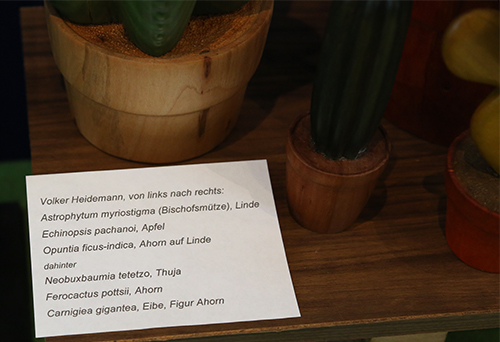 Volker Heidemann, von links nach rechts:
Astrophytum myriostigma (Bischofsmütze), Linde
Echinopsis pachanoi, Apfel
Opuntia ficus-indica, Ahorn auf Linde
dahinter
Neobuxbaumia tetetzo, Thuja
Ferocactus pottsii, Ahorn
Carnigiea gigantea, Eibe, Figur Ahorn